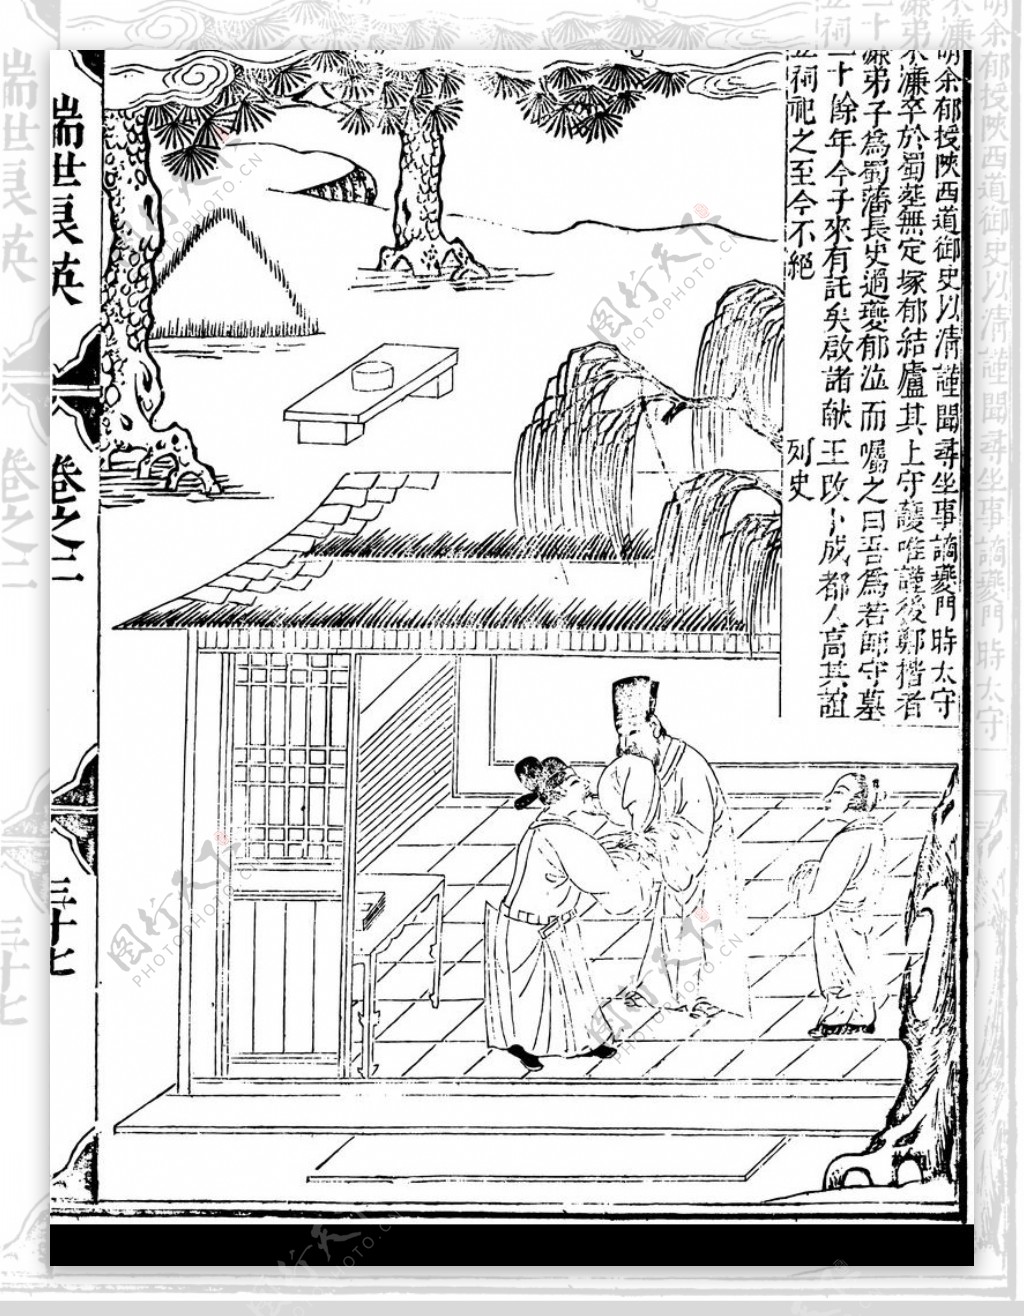 明余郁授陝西道御史以清謹聞尋坐事謫夔門時太守
宋濂卒於蜀塟無定塚郁結廬其上守護唯謹後鄭楷者
濂弟子為蜀藩長史過夔郁泣而囑之曰吾為若師守墓
二十餘年今子來有託矣啟諸献王改卜成都人高其誼
立祠祀之至今不絕
列史
瑞世良英
卷之二
三十七